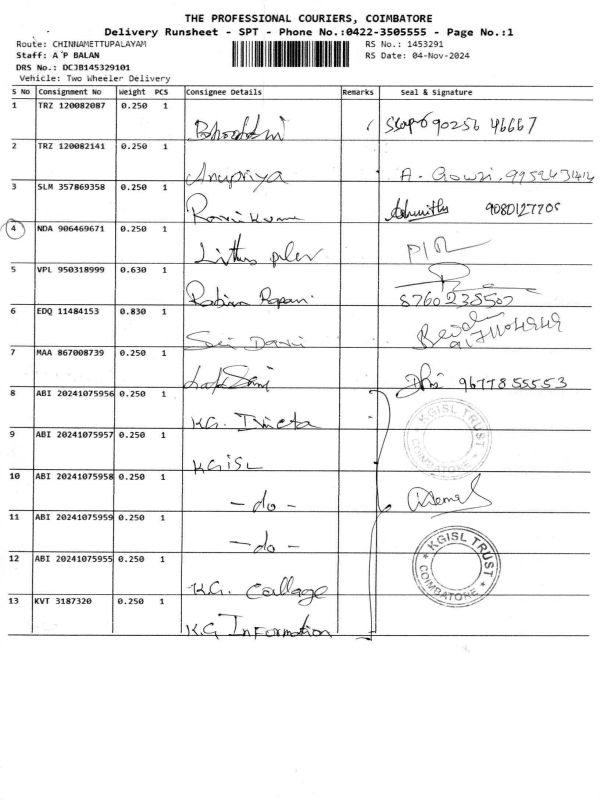 THE PROFESSIONAL COURIERS, COIMBATORE
Delivery Runsheet - SPT - Phone No.:0422-3505555 - Page No.:1
Route: CHINNAMETTUPALAYAM RS No.: 1453291
Staff: A P BALAN RS Date: 04-Nov-2024
DRS No.: DCJB145329101
Vehicle: Two Wheeler Delivery
S No Consignment No Weight PCS Consignee Details Remarks Seal & Signature
1 TRZ 120082087 0.250 1 90256 46667
2 TRZ 120082141 0.250 1 Anupriya A. Gowri. 995243414
3 SLM 357869358 0.250 1 Ravi kumar 9080127706
4 NDA 906469671 0.250 1
5 VPL 950318999 0.630 1 8760238507
6 EDQ 11484153 0.830 1 Sri Devi
7 MAA 867008739 0.250 1 9677855553
8 ABI 20241075956 0.250 1 KG. KGISL TRUST COIMBATORE
9 ABI 20241075957 0.250 1 KGISL
10 ABI 20241075958 0.250 1 - do -
11 ABI 20241075959 0.250 1 - do -
12 ABI 20241075955 0.250 1 K.G. Collage KGISL TRUST COIMBATORE
13 KVT 3187320 0.250 1 K.G Information